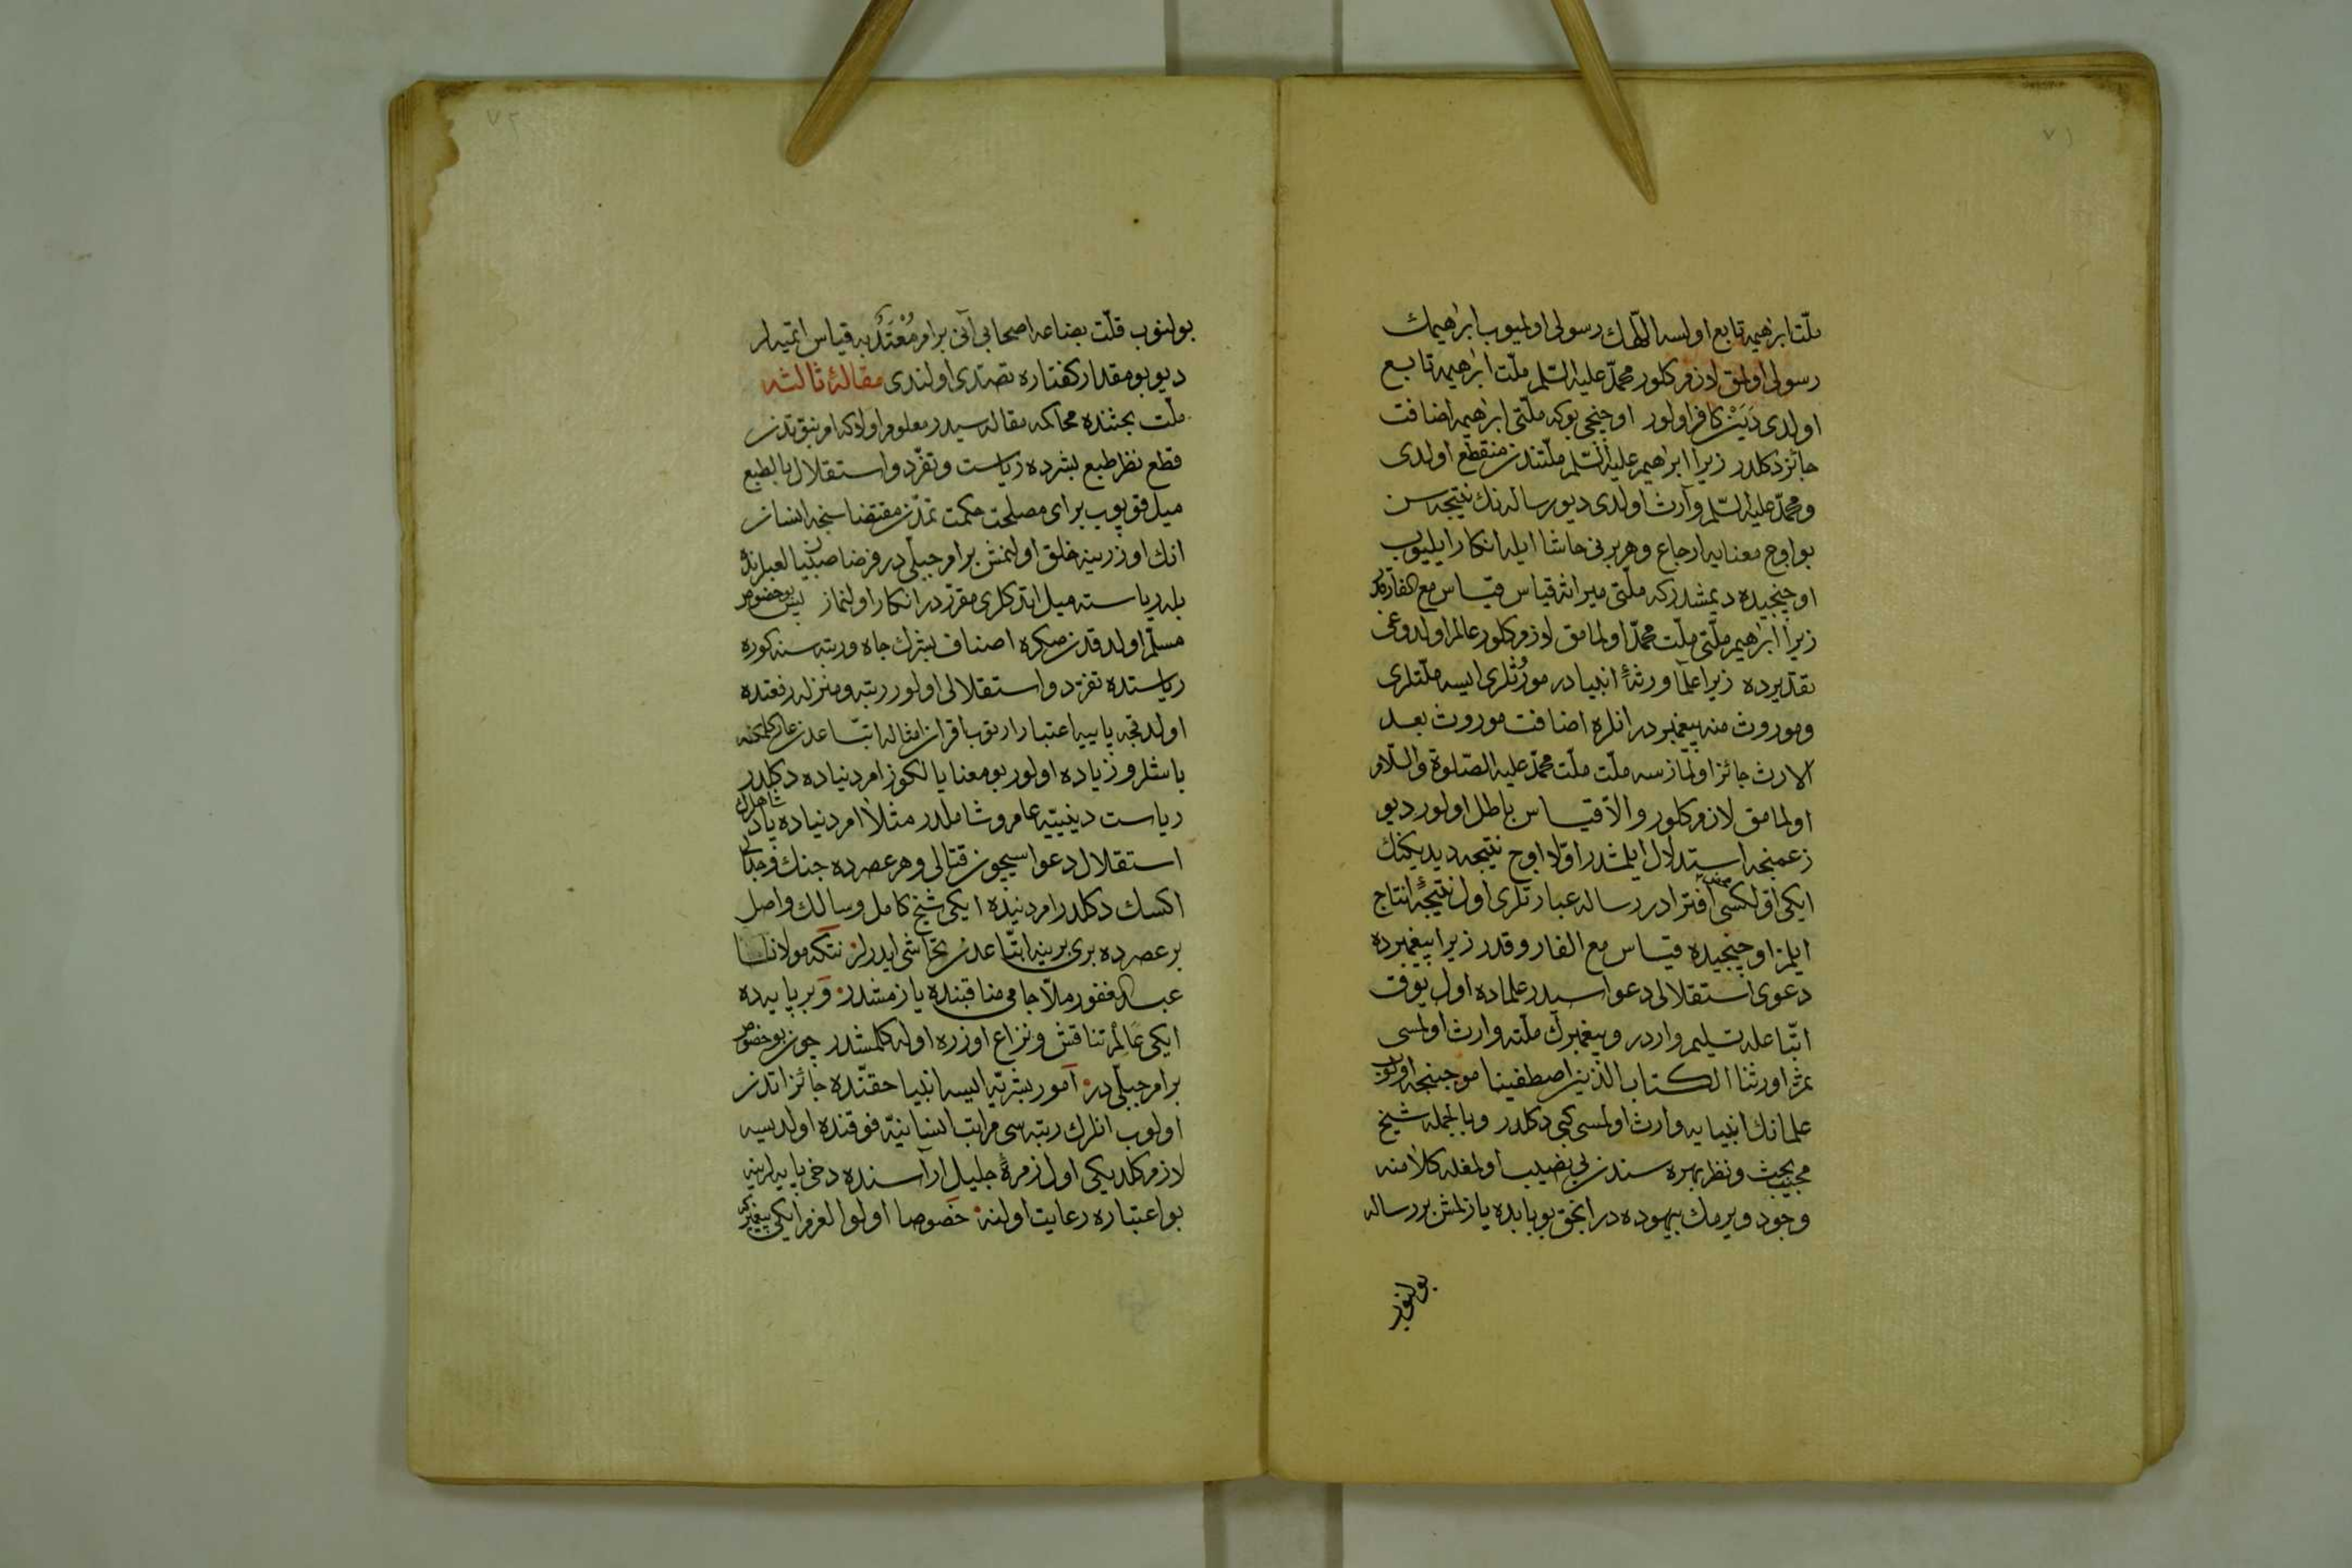 ٧١
ملّت ابرٰهیمه تابع اولسه اللّٰهك رسولی اولمیوب ابرٰهیمك
رسولی اولمق لازم كلور محمّد علیه السّلم ملّت ابرٰهیمه تابع
اولدی دَیَنْ كافر اولور اوچنجی بوكه ملّتی ابرٰهیمه اضافت
جائز دكلدر زیرا ابرٰهیم علیه السّلم ملّتندن منقطع اولدی
و محمّد علیه السّلم وارث اولدی دیو رساله نك نتیجه سن
بو اوج معنایه ارجاع و هر برنی حاشا ایله انكار ایلیوب
اوچنجیده دیمشدركه ملّتی میراثه قیاس قیاس مع الفارقدر
زیرا ابرٰهیم ملّتی ملّت محمّد اولمامق لازم كلور عالم اولدوغی
تقدیرده زیرا علما ورثۀ انبیادر مورّثلری ایسه ملّتلری
وموروث منه پیغمبردر انلره اضافت موروث بعد
الارث جائز اولمازسه ملّت ملّت محمّد علیه الصّلوة والسّلام
اولمامق لازم كلور والّا قیاس باطل اولور دیو
زعمنجه استدلال ایلمشدر اوّلا اوج نتیجه دیدیكنك
ایكی اوّلكسی محض افترادر رساله عبارتلری اول نتیجۀ انتاج
ایلمز اوچنجیده قیاس مع الفاروقدر زیرا پیغمبرده
دعوی استقلالی دعواسیدر علماده اول یوق
اتّباعله تسلیم واردر و پیغمبرك ملّته وارث اولمسی
ثمّ اورثنا الكتاب الذین اصطفینا موجبنجه اولوب
علمانك انبیایه وارث اولمسی كبی دكلدر و بالجمله شیخ
مجیب بحث و نظر بهره سندن بی نصیب اولمغله كلامنه
وجود ویرمك بیهوده در انجق بو بابده یازلمش بر رساله
بولنوب
٧٢
بولنوب قلّت بضاعه اصحابی آنی بر امر مُعْتَدٌ به قیاس ایتمیه لر
دیو بو مقدار كفتاره تصدّی اولندی مقالۀ ثالثه
ملّت بحثنده محاكمه مقاله سیدر معلوم اولاكه امر نبوّتدن
قطع نظر طبع بشرده ریاست و تفرّد و استقلال بالطبع
میل قویوب برای مصلحت حكمت تمدّن مقتضاسنجه انسان
انك اوزرینه خلق اولنمش بر امر جبلّی در فرضا صبیان لعبلرنده
بله ریاسته میل ایتدكلری مقرّردر انكار اولنماز پس بو خصوص
مسلّم اولدقدن صكره اصناف بشرك جاه و رتبه سنه كوره
ریاستده تفرّد و استقلالی اولور رتبه و منزله رفعتده
اولدقجه پایییه اعتبارا ریوب اقران و امثاله اتّباعدن عار كلمكنه
باشلر و زیاده اولور بو معنا یالكوز امر دنیاده دكلدر
ریاست دینیّیه عام و شاملدر مثلا امر دنیاده پادشاهلرك
استقلال دعواسیچون قتالی و هر عصرده جنك و جدالی
اكسك دكلدر امر دنیده ایكی شیخ كامل و سالك واصل
بر عصرده بری برینه اتّباعدن تحاشی ایدرلر نتكه مولانا
عبد الغفور ملّا جامی مناقبنده یازمشدر و بر پایه ده
ایكی عَالِمْ تناقش و نزاع اوزره اوله كلمشدر چون بو خصوص
بر امر جبلّی در امور بشریّه ایسه انبیا حقنّده جائز اتدن
اولوب انلرك رتبه سی مراتب انسانیّه فوقنده اولدیسه
لازم كلدیكی اول زمرۀ جلیل آراسنده دخی پایه لرینه
بو اعتباره رعایت اولنه خصوصا اولوا العزم ایكی پیغمبركه